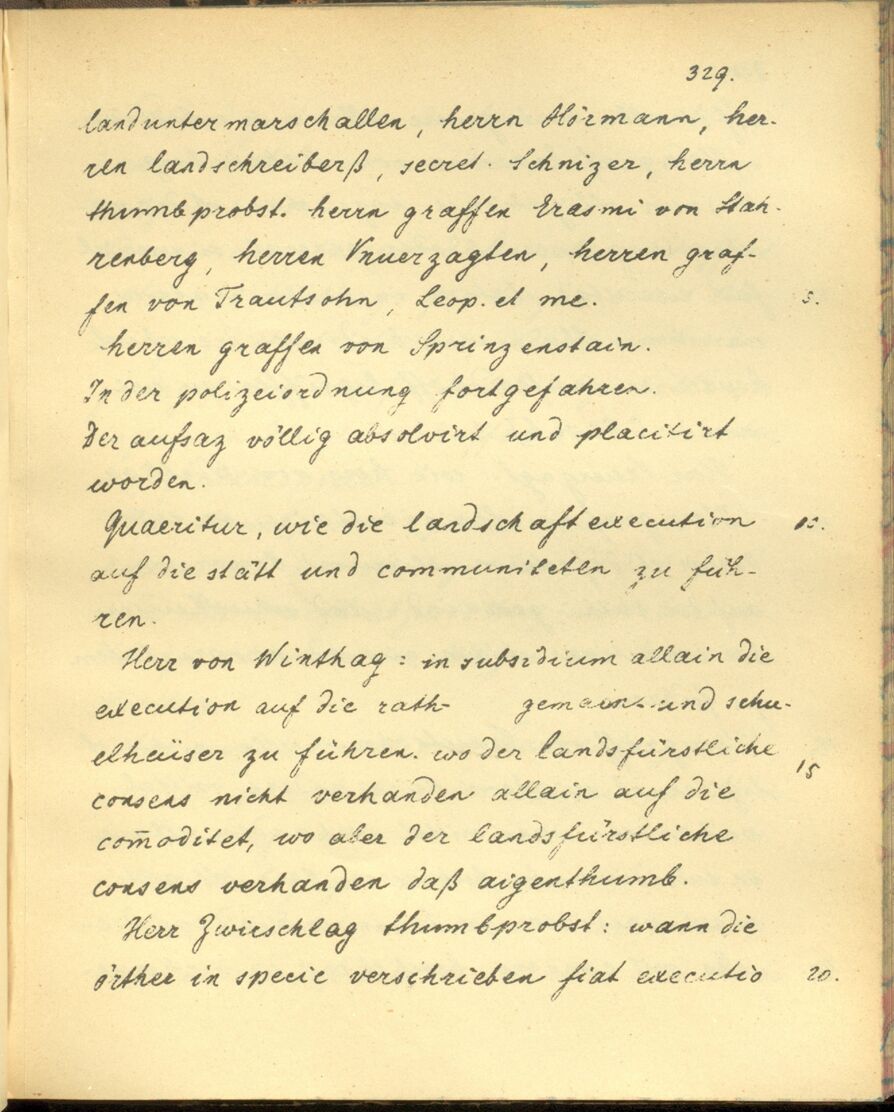 329.
landuntermarschallen, herrn Hörmann, her-
ren landschreiberß, secret. Schnizer, herrn
thumbprobst. herrn graffen Erasmi von Stah-
renberg, herren Vnuerzagten, herren graf-
fen von Trautsohn, Leop. et me. 5.
herren graffen von Sprinzenstain.
In der polizeiordnung fortgefahren.
Der aufsaz völlig absolvirt und placitirt
worden.
Quaeritur, wie die landschaftexecution 10.
auf die stätt und communiteten zu füh-
ren.
Herr von Winthag: in subsidium allain die
execution auf die rath- gemain- und schu-
elhäüser zu führen. wo der landsfürstliche 15
consens nicht verhanden allain auf die
com̄oditet, wo aber der landsfürstliche
consens verhanden daß aigenthumb.
Herr Zwirschlag thumbprobst: wann die
örther in specie verschrieben fiat executio 20.